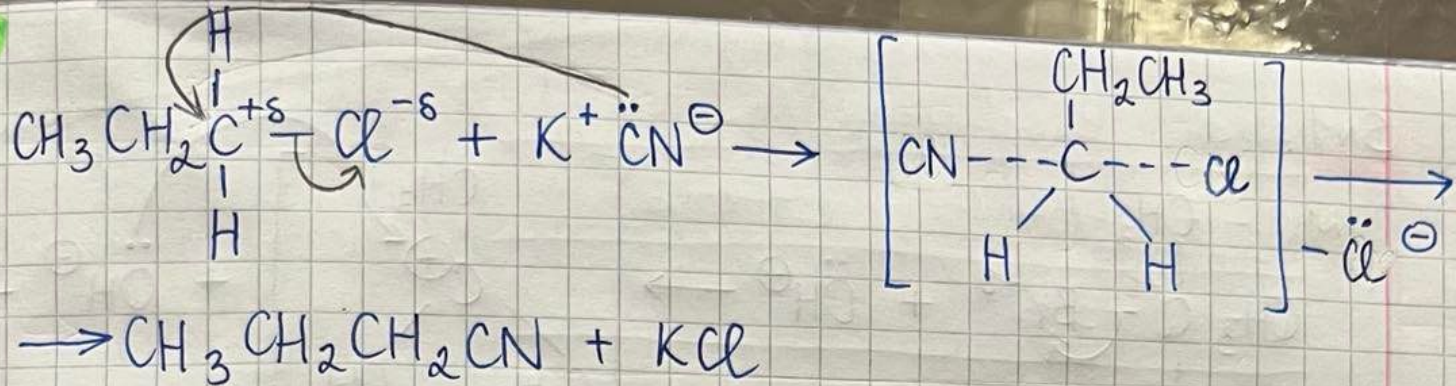 H
CH₃CH₂C⁺ᵟ–Cl⁻ᵟ + K⁺ :CN⊖ → [CN---C---Cl] →
H
CH₂CH₃
H H
-:Cl⊖
→ CH₃CH₂CH₂CN + KCl